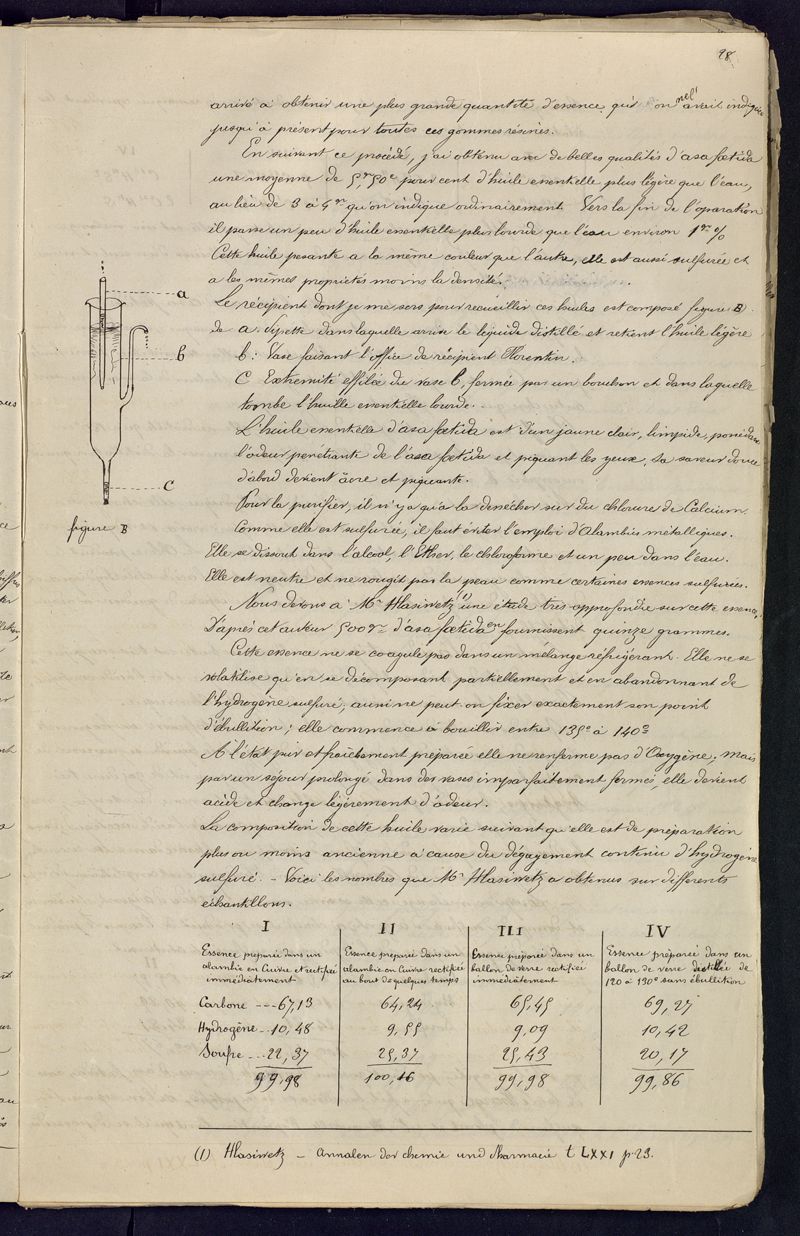 28
arrivé à obtenir une plus grande quantité d'essence qu'on ne l'avait indiqué
jusqu'à présent pour toutes ces gommes résines.
En suivant ce procédé, j'ai obtenu avec de belles qualités d'asa fœtida
une moyenne de 5,gr50c pour cent d'huile essentielle plus légère que l'eau,
au lieu de 3 à 4gr qu'on indique ordinairement. Vers la fin de l'opération
il passe un peu d'huile essentielle plus lourde que l'eau environ 1gr %
Cette huile pesante a la même couleur que l'autre, elle est aussi sulfurée et
a les mêmes propriétés moins la densité.
Le récipient dont je me sers pour recueillir ces huiles est composé figure B.
de a. Pipette dans laquelle arrive le liquide distillé et retient l'huile légère
b: Vase faisant l'office de récipient Florentin.
C Extremité effilée du vase b, fermée par un bouchon et dans laquelle
tombe l'huille essentielle lourde.
a
b
c
figure B
L'huile essentielle d'asa fœtida est d'un jaune clair, limpide, possédant
l'odeur penetrante de l'asa fœtida et piquant les yeux, sa saveur douce
d'abord devient âcre et piquante.
Pour la purifier, il n'y a qu'à la dessécher sur du chlorure de Calcium.
Comme elle est sulfurée, il faut éviter l'emploi d'Alambics métalliques.
Elle se dissout dans l'alcool, l'Ether, le chloroforme et un peu dans l'eau.
Elle est neutre et ne rougit pas la peau comme certaines essences sulfurées.
Nous devons à Mr Hlasiwetz (1) une étude très approfondie sur cette essence.
D'après cet auteur 500gr d'asa fœtida en fournissent quinze grammes.
Cette essence ne se coagule pas dans un mélange réfrigérant. Elle ne se
volatilise qu'en se décomposant partiellement et en abandonnant de
l'hydrogène sulfuré, aussi ne peut on fixer exactement son point
d'ébullition; elle commence à bouillir entre 135° à 140°
A l'état pur et fraîchement préparée elle ne renferme pas d'Oxygène, mais
par un séjour prolongé dans des vases imparfaitement fermés, elle devient
acide et change légèrement d'odeur.
La composition de cette huile varie suivant qu'elle est de préparation
plus ou moins ancienne à cause du dégagement continu d'hydrogène
sulfuré. - Voici les nombres que Mr Hlasiwetz a obtenus sur différents
échantillons.
I II III IV
Essence préparée dans un Essence préparée dans un Essence préparée dans un Essence préparée dans un
alambic en Cuivre et rectifiée alambic en Cuivre rectifiée ballon de verre rectifiée ballon de verre distillée de
immédiatement au bout de quelques temps immédiatement 120 à 130° sans ébullition
Carbone --- 67,13 64,24 65,45 69,27
Hydrogène -- 10,48 9,55 9,09 10,42
Soufre --- 22,37 25,37 25,43 20,17
99,98 100,16 99,98 99,86
(1) Hlasiwetz - Annalen der chemie und Pharmacie t LXXI p. 23.